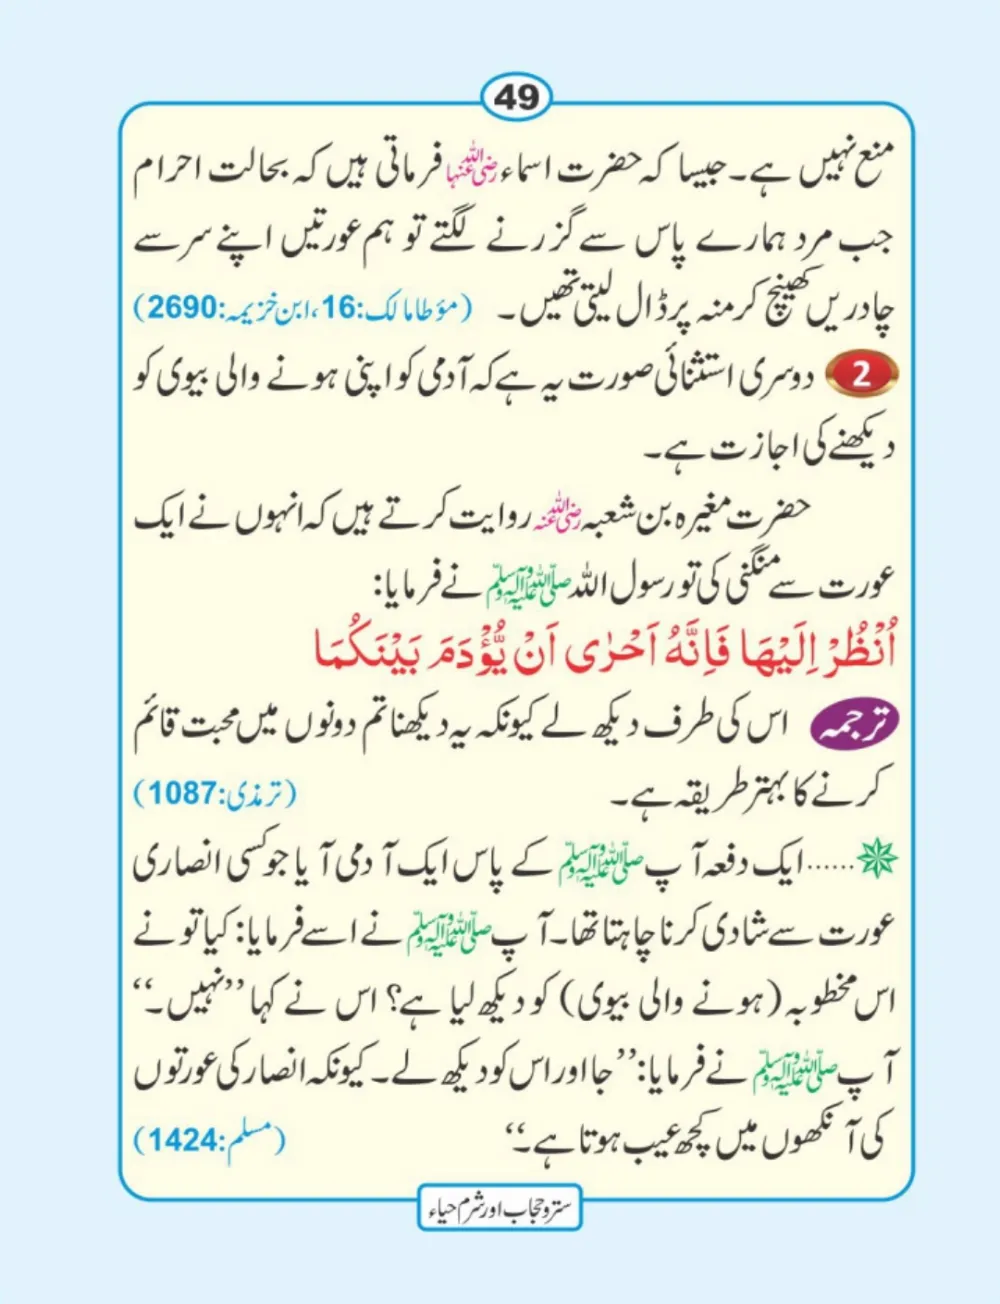 49
منع نہیں ہے۔ جیسا کہ حضرت اسماء رضی اللہ عنہا فرماتی ہیں کہ بحالت احرام
جب مرد ہمارے پاس سے گزرنے لگتے تو ہم عورتیں اپنے سر سے
چادریں کھینچ کر منہ پر ڈال لیتی تھیں۔ (مؤطا مالک:16، ابن خزیمہ:2690)
2 دوسری استثنائی صورت یہ ہے کہ آدمی کو اپنی ہونے والی بیوی کو
دیکھنے کی اجازت ہے۔
حضرت مغیرہ بن شعبہ رضی اللہ عنہ روایت کرتے ہیں کہ انہوں نے ایک
عورت سے منگنی کی تو رسول اللہ صلی اللہ علیہ وآلہ وسلم نے فرمایا:
اُنْظُرْ اِلَيْهَا فَاِنَّهُ اَحْرٰى اَنْ يُّؤْدَمَ بَيْنَكُمَا
ترجمہ اس کی طرف دیکھ لے کیونکہ یہ دیکھنا تم دونوں میں محبت قائم
کرنے کا بہتر طریقہ ہے۔ (ترمذی:1087)
......ایک دفعہ آپ صلی اللہ علیہ وآلہ وسلم کے پاس ایک آدمی آیا جو کسی انصاری
عورت سے شادی کرنا چاہتا تھا۔ آپ صلی اللہ علیہ وآلہ وسلم نے اسے فرمایا: کیا تو نے
اس مخطوبہ (ہونے والی بیوی) کو دیکھ لیا ہے؟ اس نے کہا ’’نہیں۔‘‘
آپ صلی اللہ علیہ وآلہ وسلم نے فرمایا: ’’جا اور اس کو دیکھ لے۔ کیونکہ انصار کی عورتوں
کی آنکھوں میں کچھ عیب ہوتا ہے۔‘‘ (مسلم:1424)
ستر و حجاب اور شرم حیاء